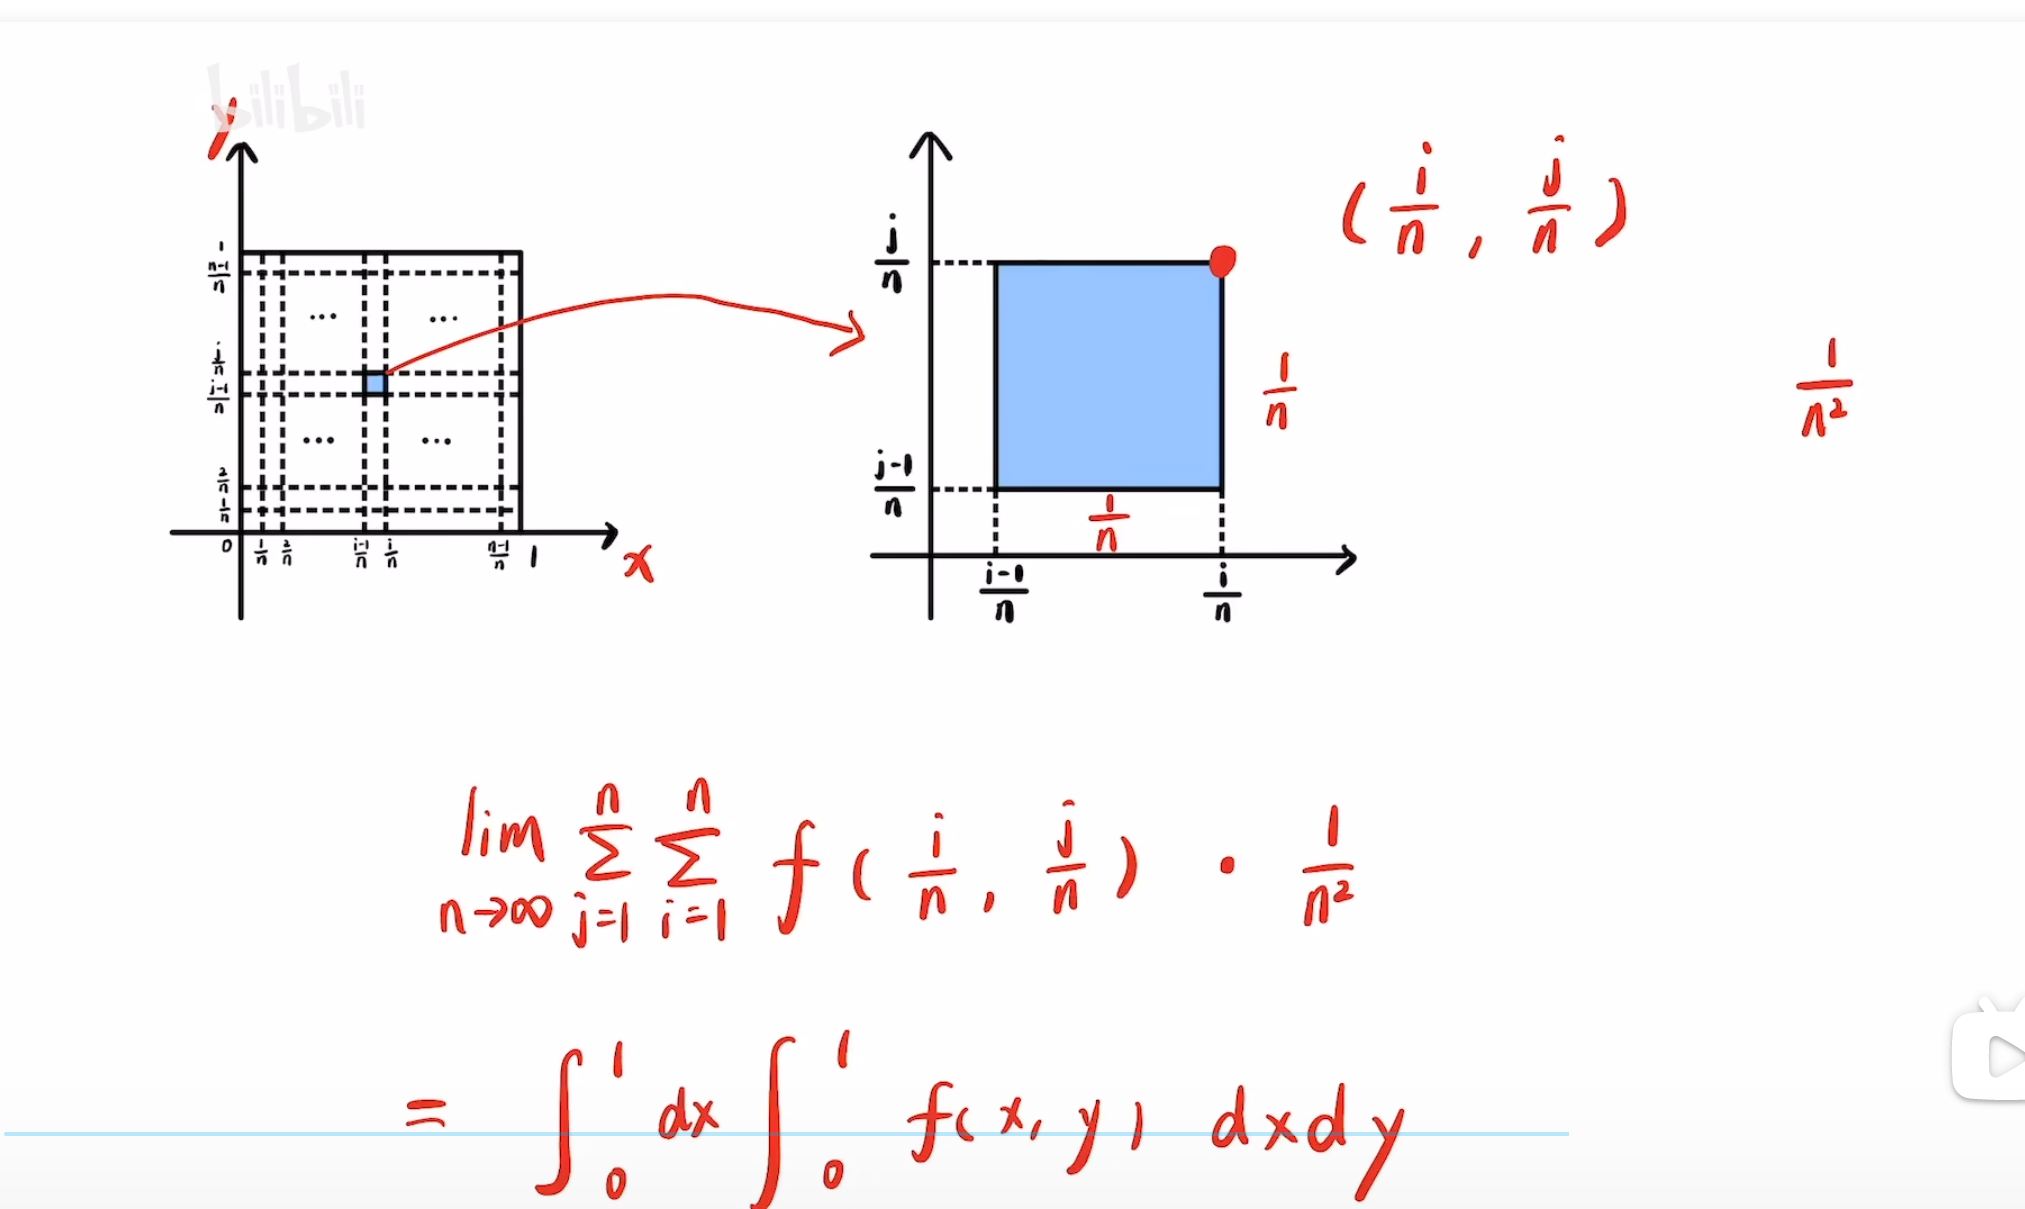 bilibili
y
1
n-1/n
j/n
j-1/n
2/n
1/n
0 1/n 2/n i-1/n i/n n-1/n 1 x
... ...
... ...
j/n
j-1/n
i-1/n i/n
1/n
1/n
(i/n, j/n)
1/n²
lim n→∞ ∑ j=1 n ∑ i=1 n f(i/n, j/n) · 1/n²
= ∫₀¹ dx ∫₀¹ f(x, y) dxdy